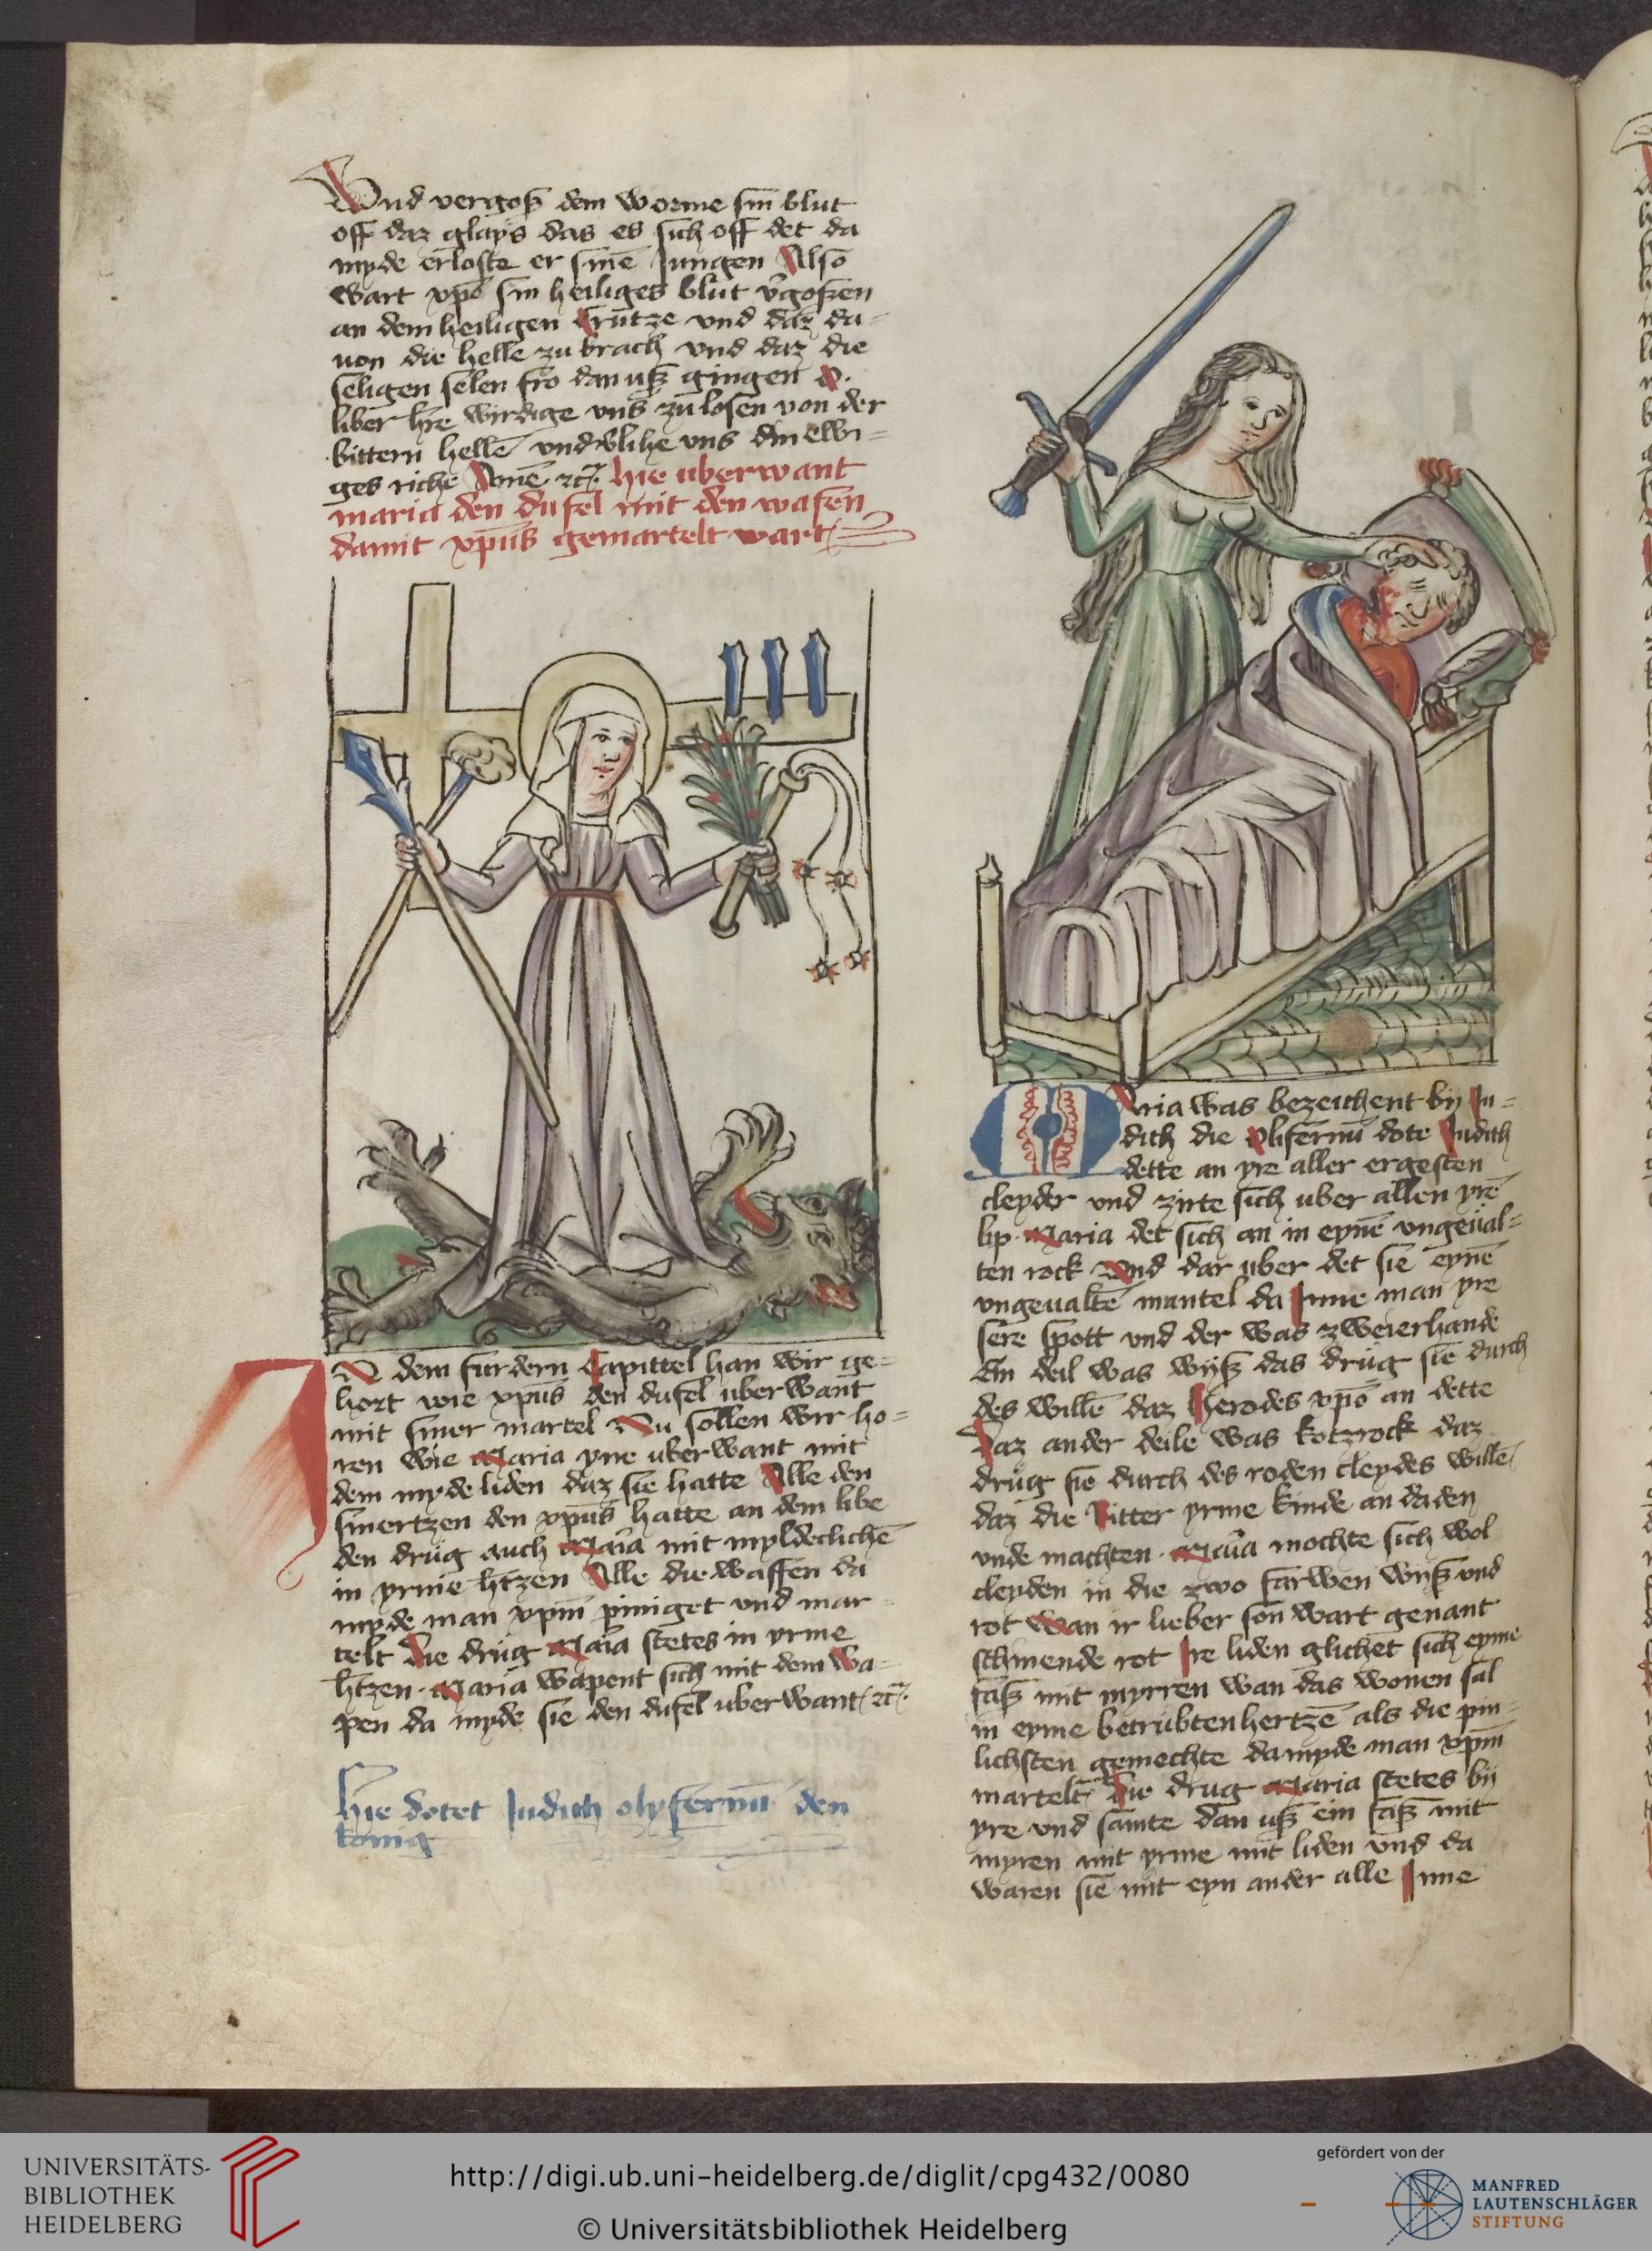 Vnd vergosz dem worme sin blut
off daz glays das es sich off det da
myde erloste er sinē Jungen Also
wart xp̄o sin heiliges blut v̓goszen
an dem heiligen Crutze vnd daz da=
uon die helle zu brach vnd daz die
seligen selen fro dan usz gingen O
liber hr̄e wirdige vns zu losen von der
bittern hellē vnd v̓lihe vns din ewi=
ges riche Amē ⁊c̄. hie uberwant
maria den dufel mit den wafen
damit xp̄us gemartelt wart
N dem furdern Capittel han wir ge=
hort wie xp̄us den dufel uberwant
mit siner martel Nu sollen wir ho=
ren wie Maria yne uberwant mit
dem myde liden daz sie hatte Alle den
smertzen den xp̄us hatte an dem libe
den drug auch Mar̄ia mit myldeclichē
in yrme h̄tzen Alle die waffen da
myde man xp̄m piniget vnd mar=
telt Die drug Mar̄ia stetes in yrme
h̄tzen. Maria wapent sich mit dem wa=
pen da myde sie den dufel uberwant ⁊c̄.
hie dotet Judich olyfernū den
konig
Aria was bezeichent by Ju=
dich die Olifernū dote Judith
dette an yre aller ergesten
cleyder vnd zirte sich uber allen yrē
lip. Maria det sich an in eynē vngeual=
ten rock Vnd dar uber det sie eynē
vngeualtē mantel da Inne man yre
sere spott vnd der was zweierhande
Ein deil was wysz das drug sie durch
des willē daz Herodes xp̄o an dette
Daz ander deile was kotzrock daz
drug sie durch des roden cleydes willē
daz die Ritter yrme kinde an daden
vnde machten. Mar̄ia mochte sich wol
cleyden in die zwo farwen wysz vnd
rot wan ir lieber son wart genant
schinende rot Ire liden glichet sich eyme
fasz mit myrren wan das wonen sal
in eyme betrubten hertzē als die pin=
lichsten gemechte da myde man xp̄m
martelt Die drug Maria stetes by
yre vnd samte dan usz ein fasz mit
myren mit yrme mit liden vnd da
waren sie mit eyn ander alle Inne
UNIVERSITÄTS-
BIBLIOTHEK
HEIDELBERG
http://digi.ub.uni-heidelberg.de/diglit/cpg432/0080
© Universitätsbibliothek Heidelberg
gefördert von der
MANFRED
LAUTENSCHLÄGER
STIFTUNG